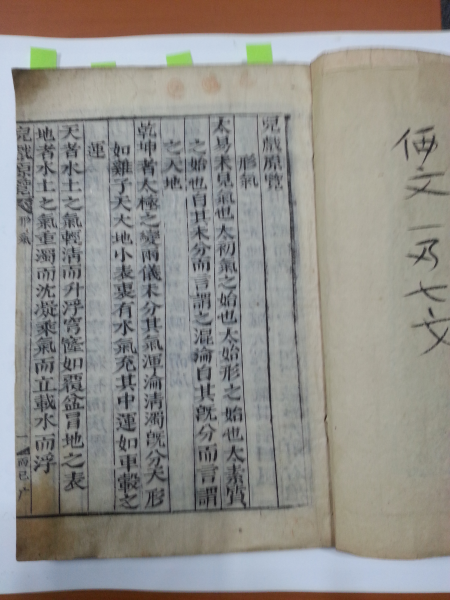 兒戲原覽
形氣
太易未見氣也太初氣之始也太始形之始也太素質
之始也自其未分而言謂之混淪自其旣分而言謂
之天地
乾坤者太極之變兩儀未分其氣渾淪淸濁旣分天形
如雞子天大地小表裏有水氣充其中運如車轂之
運
天者水土之氣輕淸而升浮穹窿如覆盆冒地之表
地者水土之氣重濁而沈凝乘氣而立載水而浮
兒戲原覽
形氣
一